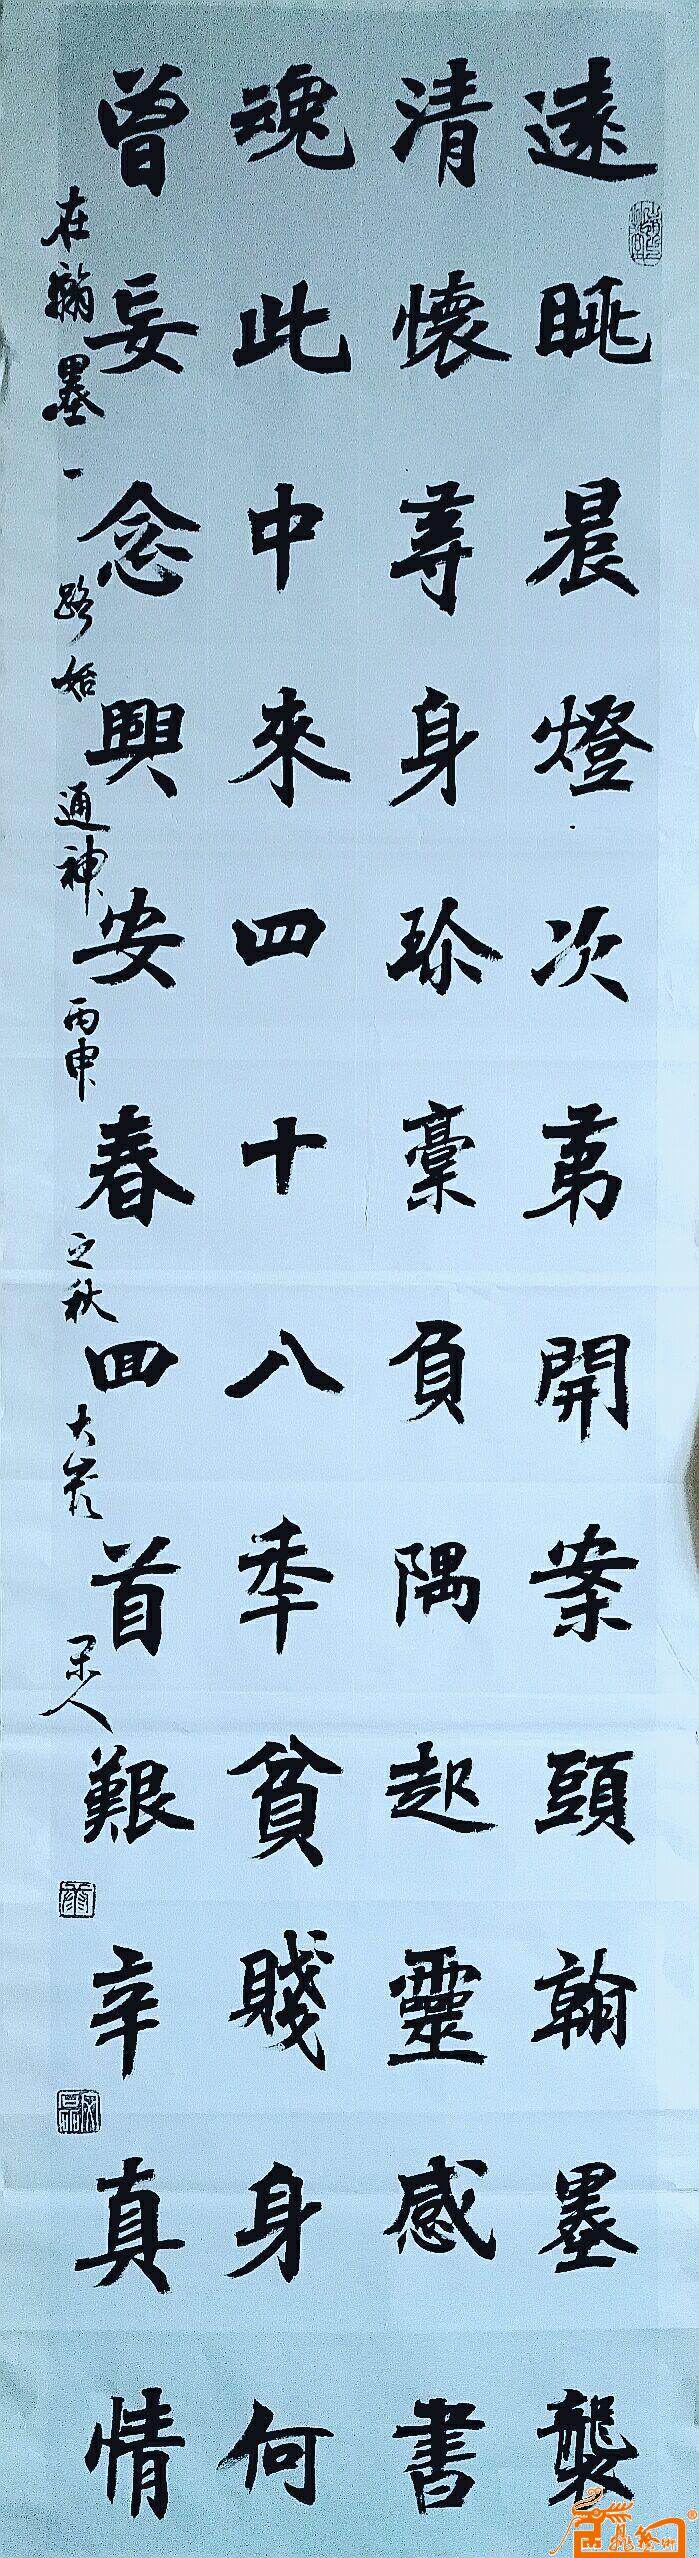 遠眺晨燈次第開案頭翰墨襲
清懷尋身珍稾負隅起靈感書
魂此中來四十八秊貧賤身何
曾妄念興安春回首艱辛真情
在翰墨一路始通神丙申之秋大岩閑人